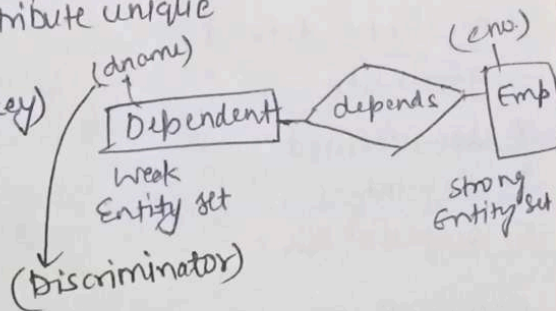 tribute unique
(eno.)
(dname)
ey)
Dependent
depends
Emp
Weak
Entity set
Strong
Entity set
(Discriminator)